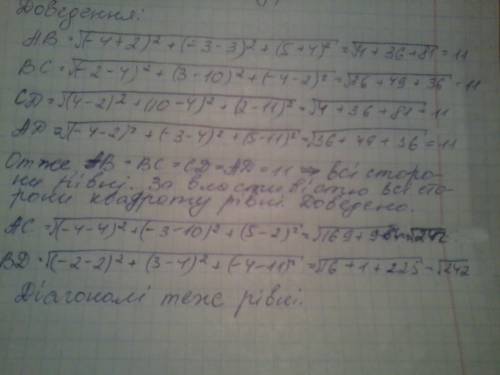 Доведення:
AB = √(-4+2)² + (-3-3)² + (5+4)² = √4+36+81 = 11
BC = √(-2-4)² + (3-10)² + (-4-2)² = √36+49+36 = 11
CD = √(4-2)² + (10-4)² + (2-11)² = √4+36+81 = 11
AD = √(-4-2)² + (-3-4)² + (5-11)² = √36+49+36 = 11
Отже AB = BC = CD = AD = 11 ⇒ всі сторо-
ни рівні. За властивістю всі сто-
рони квадрату рівні. Доведено.
AC = √(-4-4)² + (-3-10)² + (5-2)² = √169+9+ = √242
BD = √(-2-2)² + (3-4)² + (-4-11)² = √16+1+225 = √242
Діагоналі теж рівні.